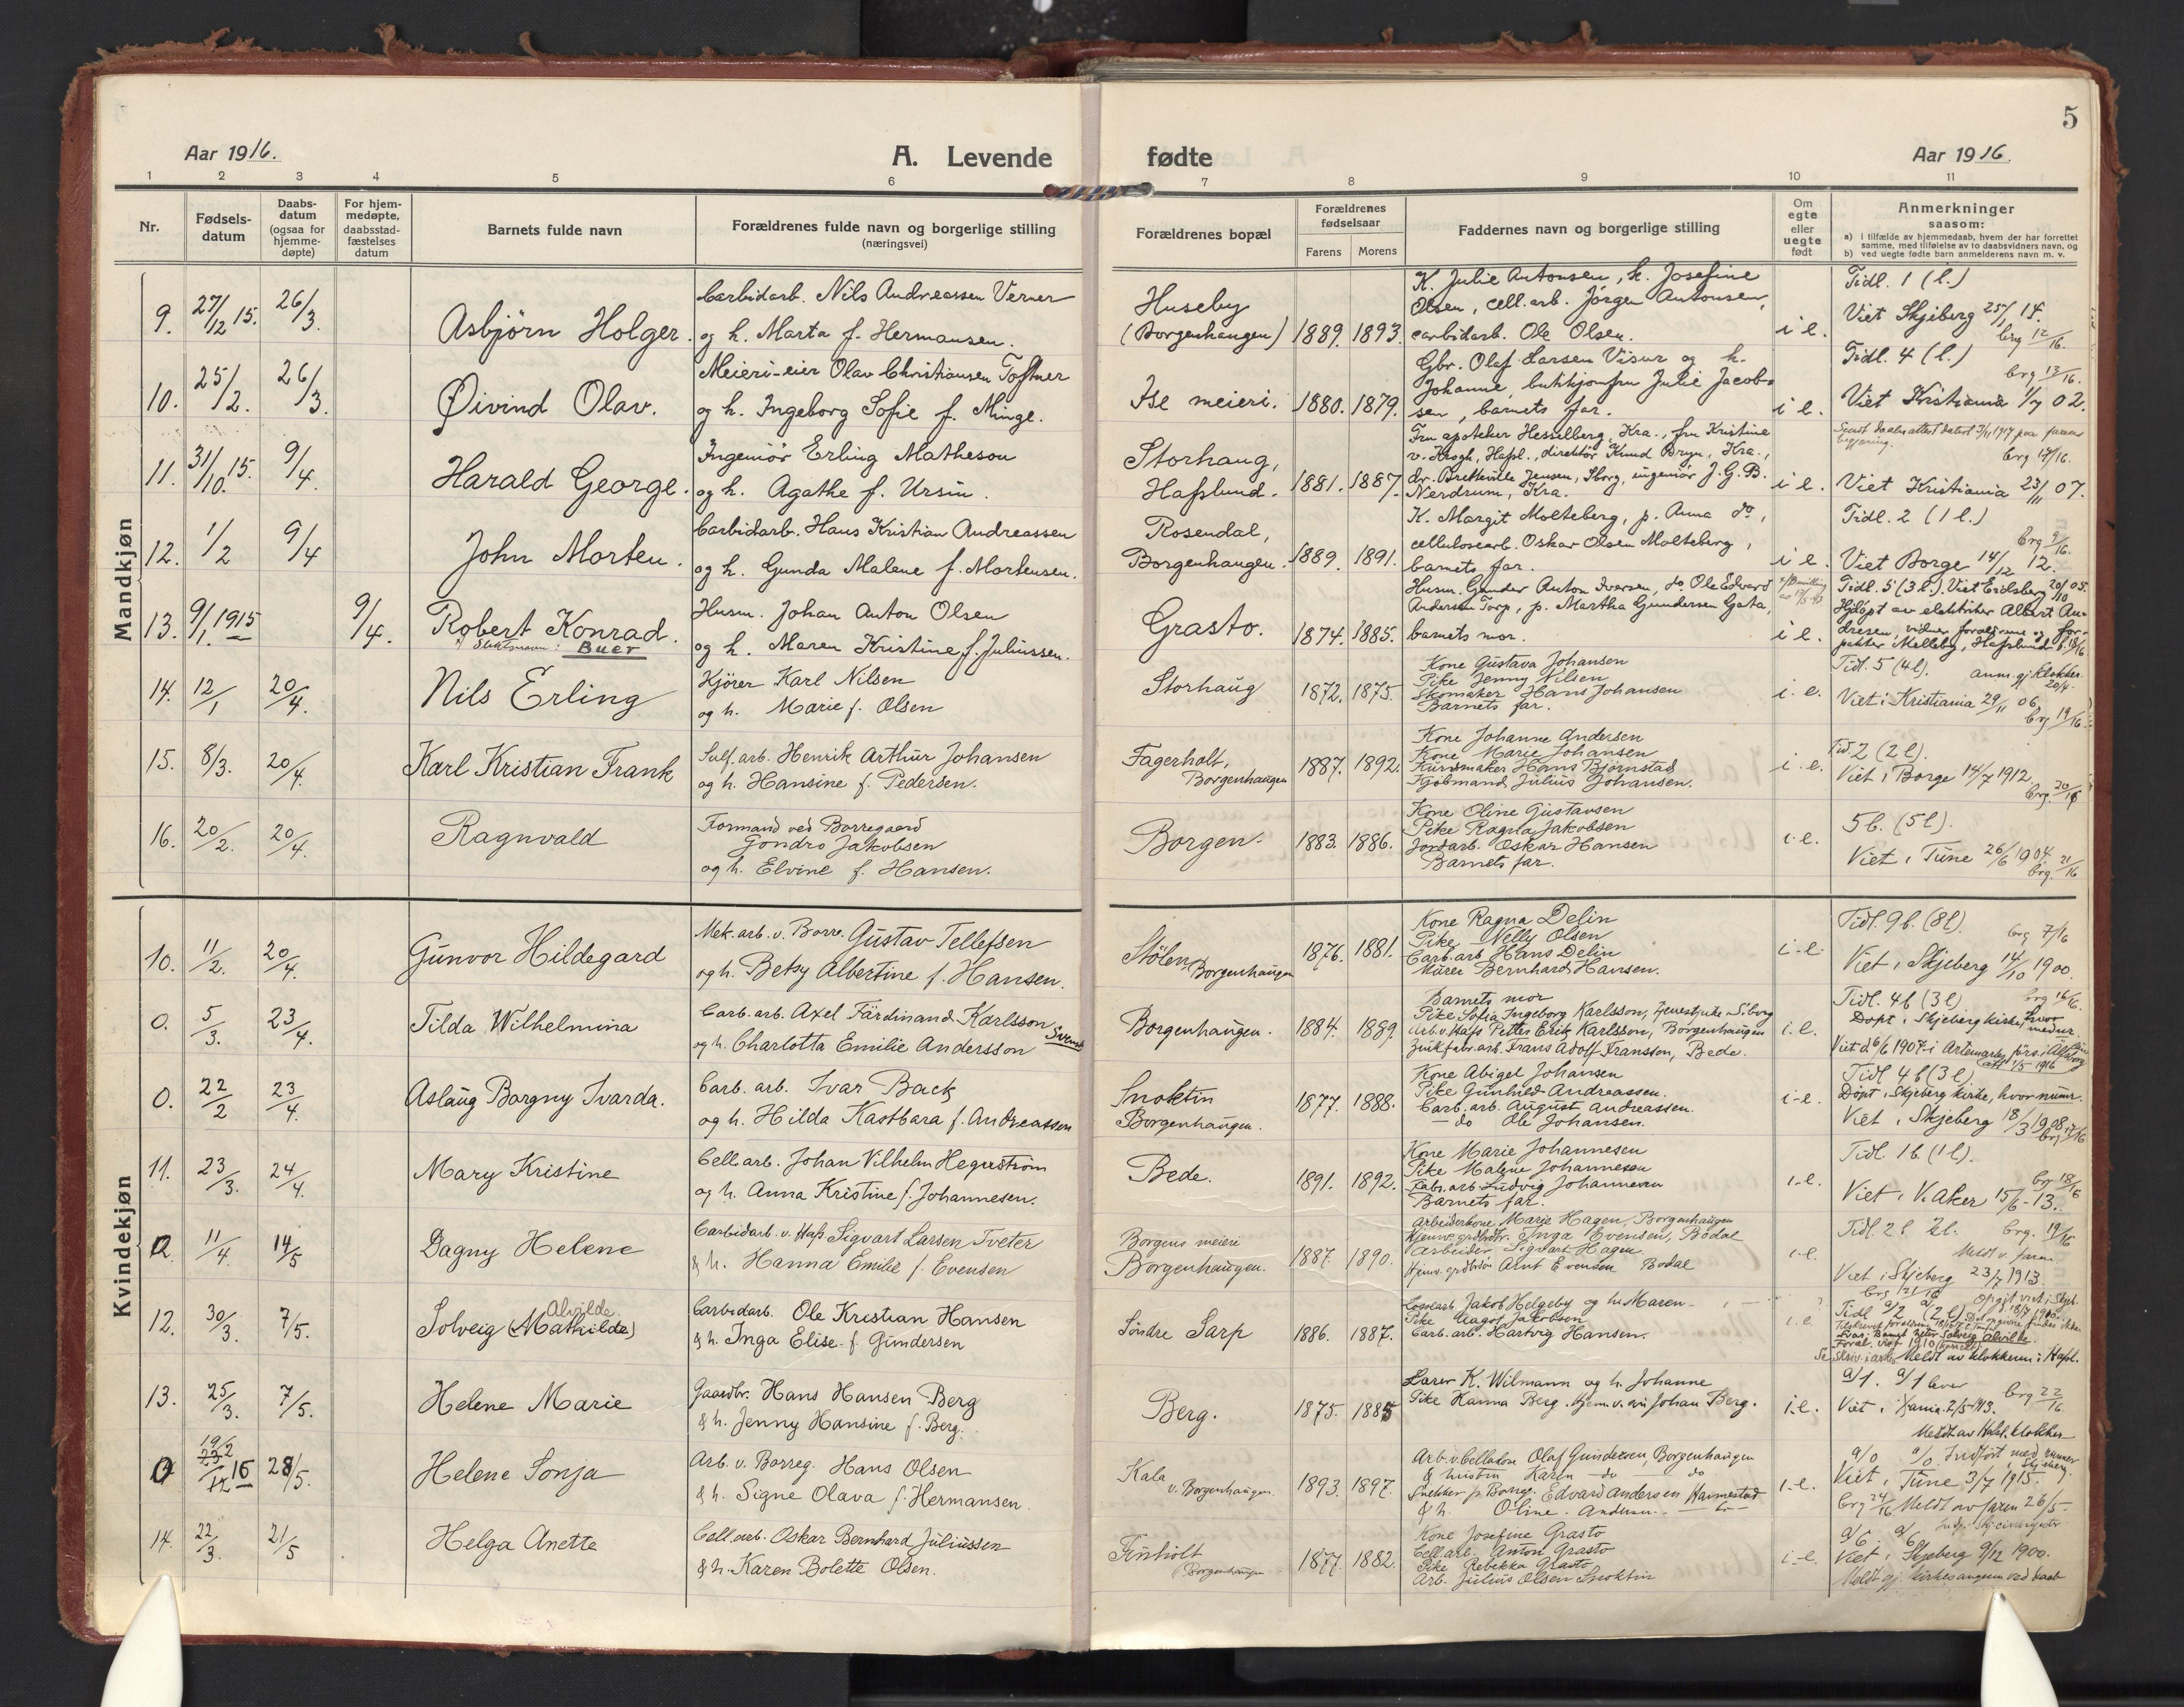 5
Aar 1916.
A. Levende fødte
Aar 1916.
1 2 3 4 5 6 7 8 9 10 11
Nr.
Fødsels-
datum
Daabs-
datum
(ogsaa for
hjemme-
døpte)
For hjem-
medøpte,
daabsstad-
fæstelses
datum
Barnets fulde navn
Forældrenes fulde navn og borgerlige stilling
(næringsvei)
Forældrenes bopæl
Forældrenes
fødselsaar
Farens Morens
Faddernes navn og borgerlige stilling
Om
egte
eller
uegte
født
Anmerkninger
saasom:
a) i tilfælde av hjemmedaab, hvem der har forrettet
samme, med tilføielse av to daabsvidners navn, og
b) ved uegte fødte barn anmelderens navn m. v.
Mandkjøn
9. 27/12 15. 26/3. Asbjörn Holger.
Carbidarb. Nils Andreassen Verner
og h. Marta f. Hermansen.
Huseby
(Borgenhaugen) 1889. 1893.
K. Julie Antonsen, k. Josefine
Olsen, cell.arb. Jørgen Antonsen,
carbidarb. Ole Olsen.
i e.
Tidl. 1 (l.)
Viet Skjeberg 25/1 14.
brg 12/16.
10. 25/2. 26/3. Øivind Olav.
Meieri-eier Olav Christiansen Toftner
og h. Ingeborg Sofie f. Minge.
Ise meieri. 1880. 1879.
Gbr. Olaf Larsen Visur og h.
Johanne, butikjomfru Julie Jacob-
sen, barnets far.
i e.
Tidl. 4 (l.)
brg 13/16.
Viet Kristiania 1/7 02.
11. 31/10 15. 9/4. Harald George.
Ingeniör Erling Matheson
og h. Agathe f. Ursin.
Storhaug,
Hafslund. 1881. 1887.
Fru apoteker Hesselberg, Kra., fru Kristine
v. Krogh, Hafsl., direktör Knud Bryn, Kra.,
dr. Bretteville Jensen, Sbrg, ingeniør J. G. B.
Nerdrum, Kra.
i e.
Sendt daabsattest datert 3/11 1917 paa farens
begjæring.
brg 17/16.
Viet Kristiania 23/11 07.
12. 1/2 9/4 John Morten.
Carbidarb. Hans Kristian Andreassen
og h. Gunda Malene f. Mortensen.
Rosendal,
Borgenhaugen. 1889. 1891.
K. Margit Molteberg, p. Anna do,
cellulosearb. Oskar Olsen Molteberg,
barnets far.
i e.
Tidl. 2 (1 l.)
brg 9/16.
Viet Borge 14/12 12.
13. 9/1 1915 9/4. Robert Konrad.
Slektsnavn: Buer
Husm. Johan Anton Olsen
og h. Maren Kristine f. Juliussen.
Grasto. 1874. 1885.
Husm. Gunder Anton Iversen, do Ole Edvard
Andersen Torp, p. Martha Gundersen Gata,
barnets mor.
i e.
Tidl. 5 (3 l.). Viet Eidsberg 20/10 05.
Hjdöpt av elektriker Albert An-
dresen, vidner forældrene og for-
pakter Melleby, Hafslund. b. 18/16
14. 12/1 20/4. Nils Erling
Kjører Karl Nilsen
og h. Marie f. Olsen
Storhaug 1872. 1875.
Kone Gustava Johansen
Pike Jenny Nilsen
Skomaker Hans Johansen
Barnets far.
i. e.
Tidl. 5 (4 l). anm. gj. klokker
20/4.
Viet i Kristiania 29/11 06
brg 19/16.
15. 8/3. 20/4. Karl Kristian Frank
Sulf. arb. Henrik Arthur Johansen
og h. Hansine f. Pedersen.
Fagerholt,
Borgenhaugen 1887. 1892.
Kone Johanne Andersen
Kone Marie Johansen
Kurvmaker Hans Bjørnstad
Kjøbmand Julius Johansen.
i. e.
Tid. 2 (2 l).
Viet i Borge 14/7 1912.
brg. 20/16
16. 20/2. 20/4. Ragnvald
Formand ved Borregaard
Gondro Jakobsen
og h. Elvine f. Hansen.
Borgen. 1883. 1886.
Kone Oline Gustavsen
Pike Ragna Jakobsen
Jordarb. Oskar Hansen
Barnets far.
i. e.
5 b. (5 l).
Viet i Tune 26/6 1904.
brg. 21/16
Kvindekjøn
10. 11/2. 20/4. Gunvor Hildegard
Mek. arb. v. Borre. Gustav Tellefsen
og h. Betsy Albertine f. Hansen.
Stölen,
Borgenhaugen 1876. 1881.
Kone Ragna Delin
Pike Nelly Olsen
Carb. arb Hans Delin
Murer Bernhard Hansen.
i-e
Tidl. 9 b. (8 l). brg 7/16
Viet i Skjeberg 14/10 1900.
0. 5/3. 23/4. Tilda Wilhelmina
Carb. arb. Axel Färdinand Karlsson
og h. Charlotta Emilie Andersson Svensk
Borgenhaugen. 1884. 1889.
Barnets mor
Pike Sofia Ingeborg Karlsson, tjenestpike Viborg
Arb. v. Hafs Petter Erik Karlsson, Borgenhaugen
Zinkfabr. arb. Frans Adolf Fransson, Bede.
i e.
Tidl. 4 b (3 l) brg 16/16.
Döpt i Skjeberg kirke, hvor numr
Viet d 6/6 1907 i Artemark
att 1/5 1916
0. 22/2 23/4. Aslaug Borgny Ivarda.
Carb. arb. Ivar Back
og h. Hilda Kastbara f. Andreassen
Snoktin
Borgenhaugen. 1877. 1888.
Kone Abigel Johansen
Pike Gunhild Andreassen.
Carb. arb. August Andreassen.
— do Ole Johansen.
i-e.
Tidl 4 b (3 l)
Döpt i Skjeberg kirke, hvor numr.
Viet i Skjeberg 18/3 1908.
11. 23/3. 24/4. Mary Kristine
Cell. arb. Johan Vilhelm Hegerström
og h. Anna Kristine f. Johannesen.
Bede. 1891. 1892.
Kone Marie Johannesen
Pike Malene Johannesen
Fabr. arb. Ludvig Johannesen
Barnets far.
i-e.
Tidl. 1 b (1 l).
brg 18/16
Viet i V. Aker 15/6-13.
0. 11/4. 14/5 Dagny Helene
Carbidarb. v. Hafs. Sigvart Larsen Tveter
& h. Hanna Emilie f. Evensen
Borgens meieri
Borgenhaugen. 1887. 1890.
Arbeiderkone Marie Hagen, Borgenhaugen
Hjemv. grdbrdtr. Inga Evensen, Bodal
Arbeider Sigvart Hagen
Hjemv. grdbrsön Alut Evensen Bodal
i-e.
Tidl 2 l 2 l. brg. 19/16
Meldt v. faren
Viet i Skjeberg 23/7 1913.
12. 30/3. 7/5. Solveig (Mathilde) Alvilde
Carbidarb. Ole Kristian Hansen
& h. Inga Elise f. Gundersen
Söndre Sarp 1886. 1887.
Jakob Helgeby og h. Maren
Pike Aagot Jakobsen
Carb. arb. Hartvig Hansen.
i. e
Tidl 2/2 (2 l)
Svar: Barnet heter Solveig Alvilde
Foræl. viet 1910
Meldt av klokkeren i Hafsl.
13. 25/3. 7/5. Helene Marie
Gaardbr. Hans Hansen Berg
& h. Jenny Hansine f. Berg.
Berg. 1875. 1885
Lærer K. Wilmann og h. Johanne
Pike Hanna Berg. Hjem. v. søn Johan Berg.
i-e.
a/1. a/1 lever brg 22/16
Viet i Kania. 2/5-1913.
Meldt av Hafsl. klokker
0 19/2 15 28/5. Helene Sonja
Arb. v. Borreg. Hans Olsen
& h. Signe Olava f. Hermansen.
Kala
v. Borgenhaugen. 1893. 1897.
Arb. v. Cellulose Olaf Gundersen, Borgenhaugen
& hustru Karen — do — do
Snekker p. Borreg. Edvard Andersen Hannestad
& h. Oline Andersen
i-e.
a/0 a/0 Indført med numer
i Skjeberg.
Viet i Tune 3/7 1915.
brg 24/16 Meldt av faren 26/5.
14. 22/3. 21/5 Helga Anette
Cell. arb. Oskar Bernhard Juliussen
& h. Karen Bolette Olsen.
Furiholt
Borgenhaugen 1877. 1882.
Kone Josefine Grasto
Cell. arb. Anton Grasto
Pike Rebekka Grasto
Arb. Julius Olsen Snoktin
i-e.
a/6 a/6
Viet i Skjeberg 9/12 1900.
Meldt gj. kirkesangeren ved daab